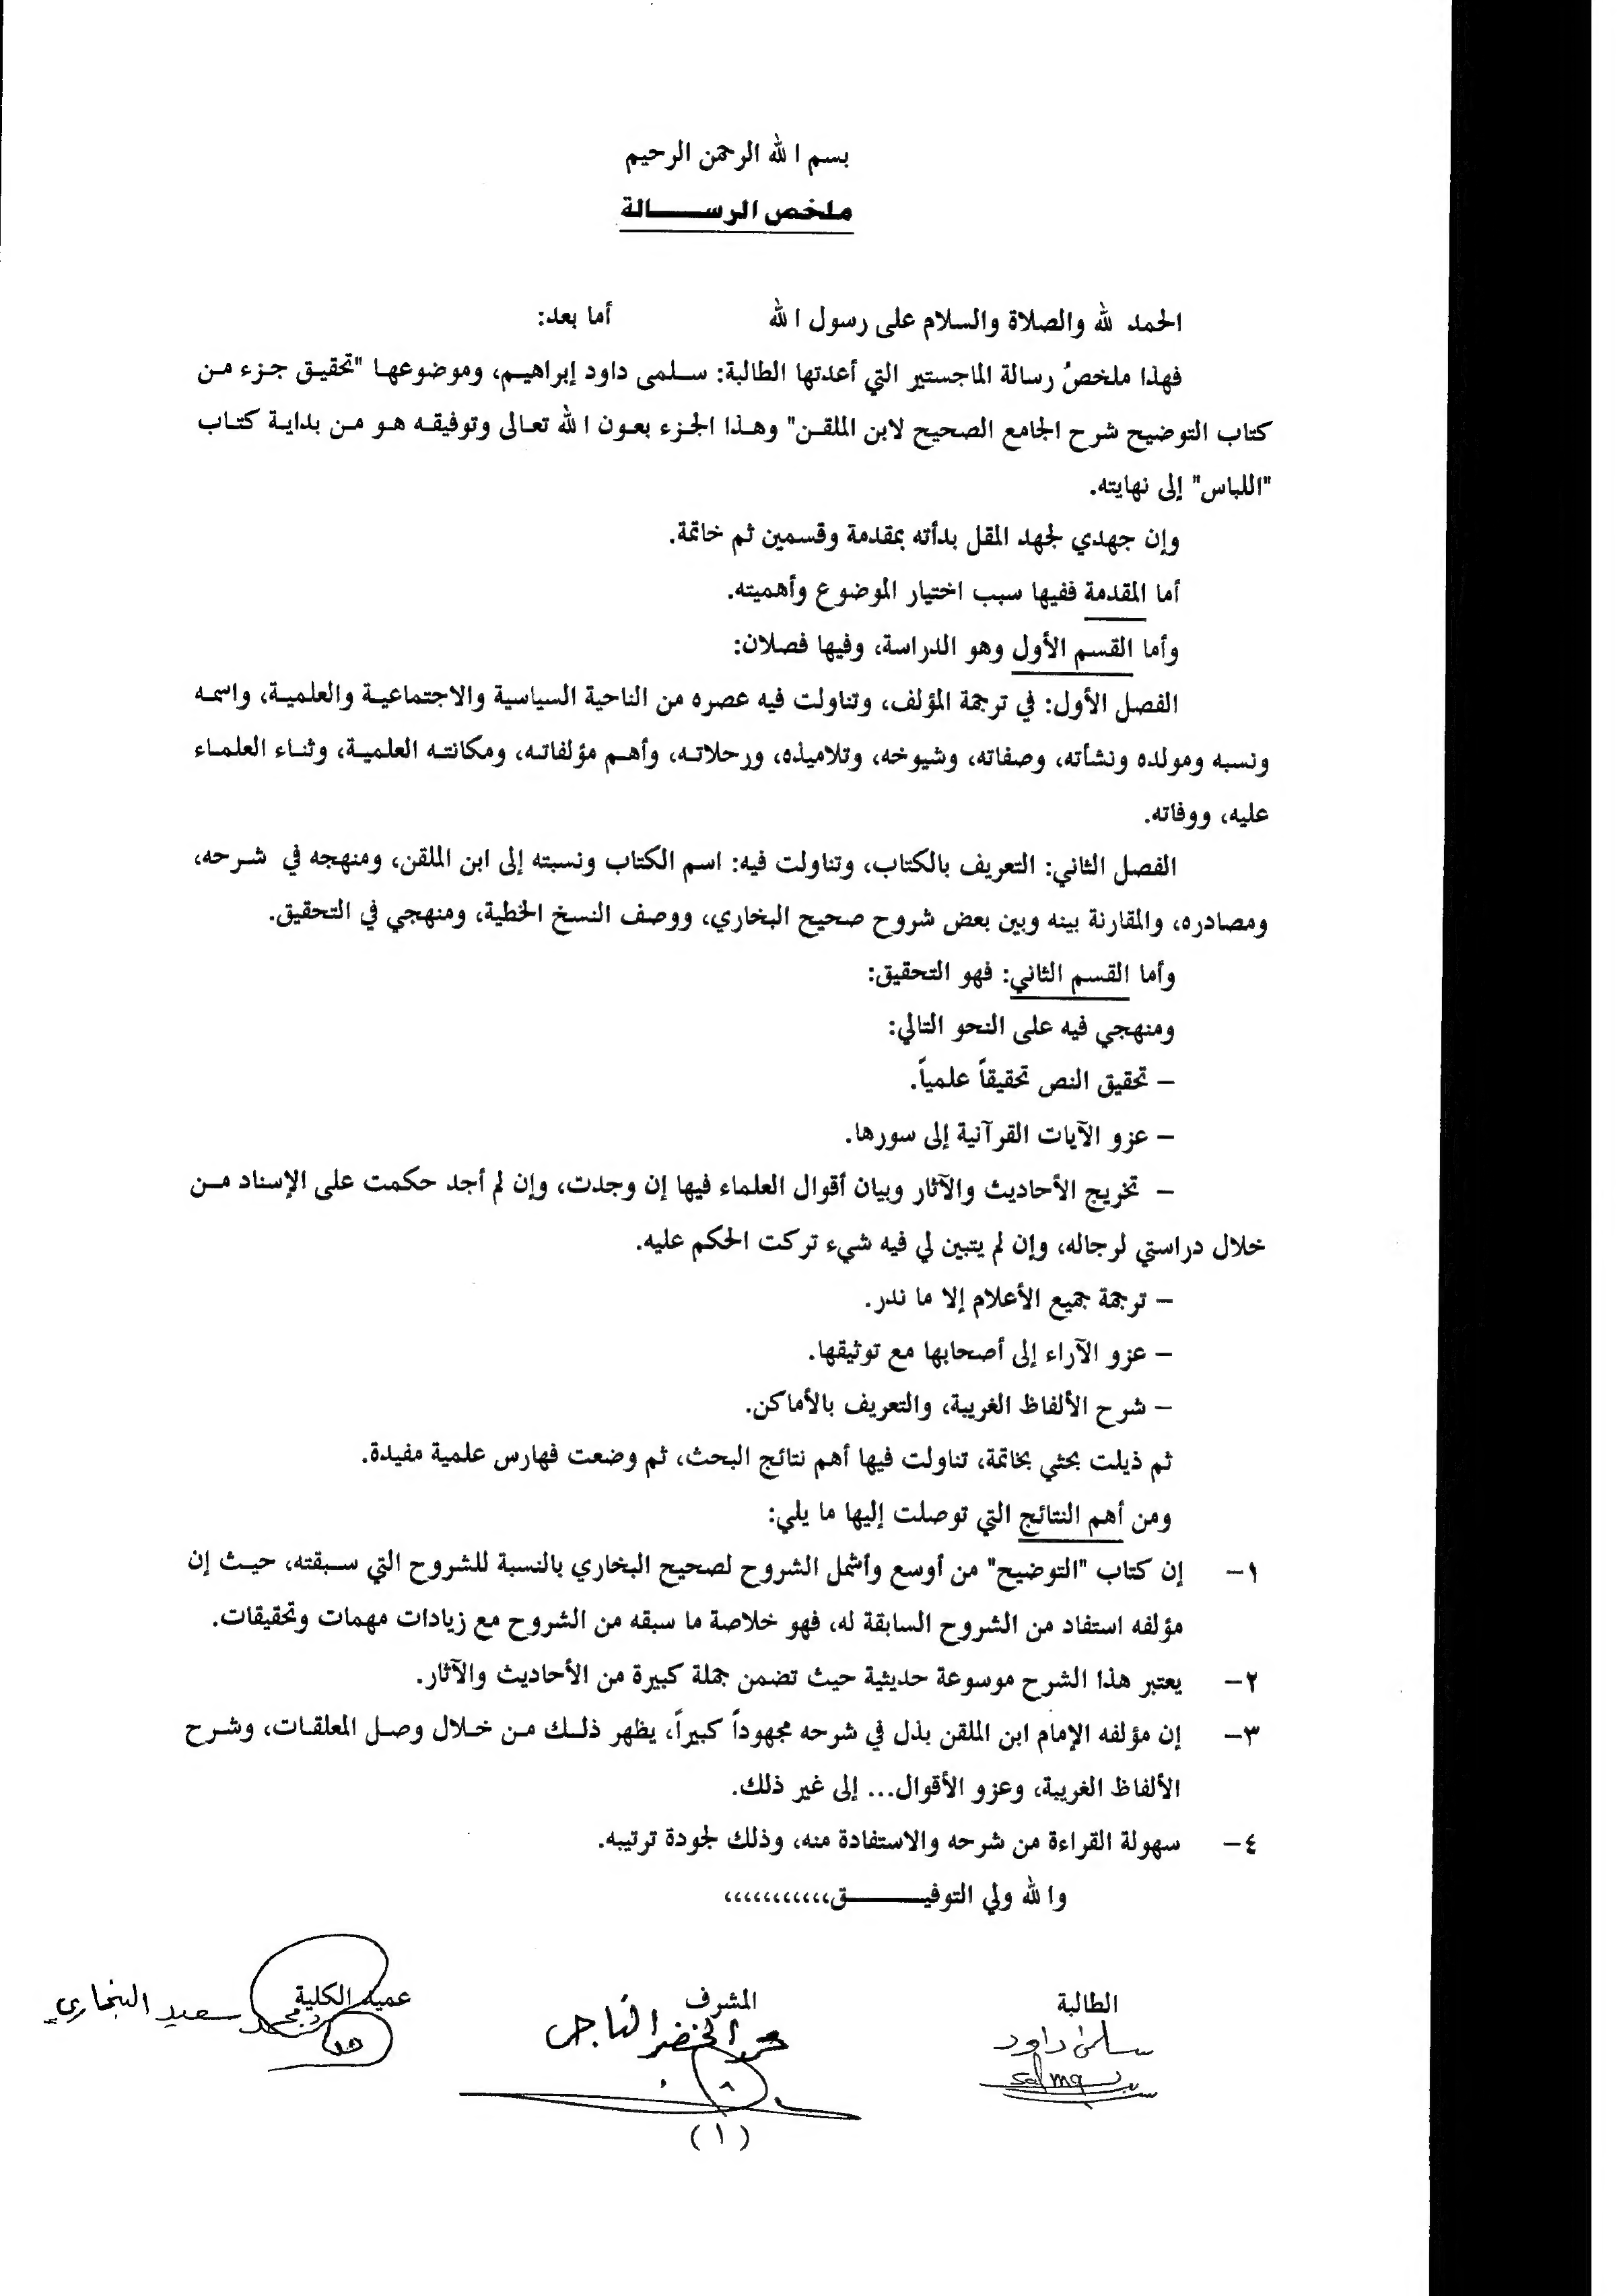 بسم الله الرحمن الرحيم
ملخص الرســـــالة
الحمد لله والصلاة والسلام على رسول الله أما بعد:
فهذا ملخصُ رسالة الماجستير التي أعدتها الطالبة: سلمى داود إبراهيم، وموضوعها "تحقيق جزء من
كتاب التوضيح شرح الجامع الصحيح لابن الملقن" وهذا الجزء بعون الله تعالى وتوفيقه هو من بداية كتاب
"اللباس" إلى نهايته.
وإن جهدي لجهد المقل بدأته بمقدمة وقسمين ثم خاتمة.
أما المقدمة ففيها سبب اختيار الموضوع وأهميته.
وأما القسم الأول وهو الدراسة، وفيها فصلان:
الفصل الأول: في ترجمة المؤلف، وتناولت فيه عصره من الناحية السياسية والاجتماعية والعلمية، واسمه
ونسبه ومولده ونشأته، وصفاته، وشيوخه، وتلاميذه، ورحلاته، وأهم مؤلفاته، ومكانته العلمية، وثناء العلماء
عليه، ووفاته.
الفصل الثاني: التعريف بالكتاب، وتناولت فيه: اسم الكتاب ونسبته إلى ابن الملقن، ومنهجه في شرحه،
ومصادره، والمقارنة بينه وبين بعض شروح صحيح البخاري، ووصف النسخ الخطية، ومنهجي في التحقيق.
وأما القسم الثاني: فهو التحقيق:
ومنهجي فيه على النحو التالي:
– تحقيق النص تحقيقاً علمياً.
– عزو الآيات القرآنية إلى سورها.
– تخريج الأحاديث والآثار وبيان أقوال العلماء فيها إن وجدت، وإن لم أجد حكمت على الإسناد من
خلال دراستي لرجاله، وإن لم يتبين لي فيه شيء تركت الحكم عليه.
– ترجمة جميع الأعلام إلا ما ندر.
– عزو الآراء إلى أصحابها مع توثيقها.
– شرح الألفاظ الغريبة، والتعريف بالأماكن.
ثم ذيلت بحثي بخاتمة، تناولت فيها أهم نتائج البحث، ثم وضعت فهارس علمية مفيدة.
ومن أهم النتائج التي توصلت إليها ما يلي:
١– إن كتاب "التوضيح" من أوسع وأشمل الشروح لصحيح البخاري بالنسبة للشروح التي سبقته، حيث إن
مؤلفه استفاد من الشروح السابقة له، فهو خلاصة ما سبقه من الشروح مع زيادات مهمات وتحقيقات.
٢– يعتبر هذا الشرح موسوعة حديثية حيث تضمن جملة كبيرة من الأحاديث والآثار.
٣– إن مؤلفه الإمام ابن الملقن بذل في شرحه مجهوداً كبيراً، يظهر ذلك من خلال وصل المعلقات، وشرح
الألفاظ الغريبة، وعزو الأقوال... إلى غير ذلك.
٤– سهولة القراءة من شرحه والاستفادة منه، وذلك لجودة ترتيبه.
والله ولي التوفيـــــــــق،،،،،،،،،،،
الطالبة المشرف عميد الكلية
سلمى داود
salma
سعيد البخاري
(١)